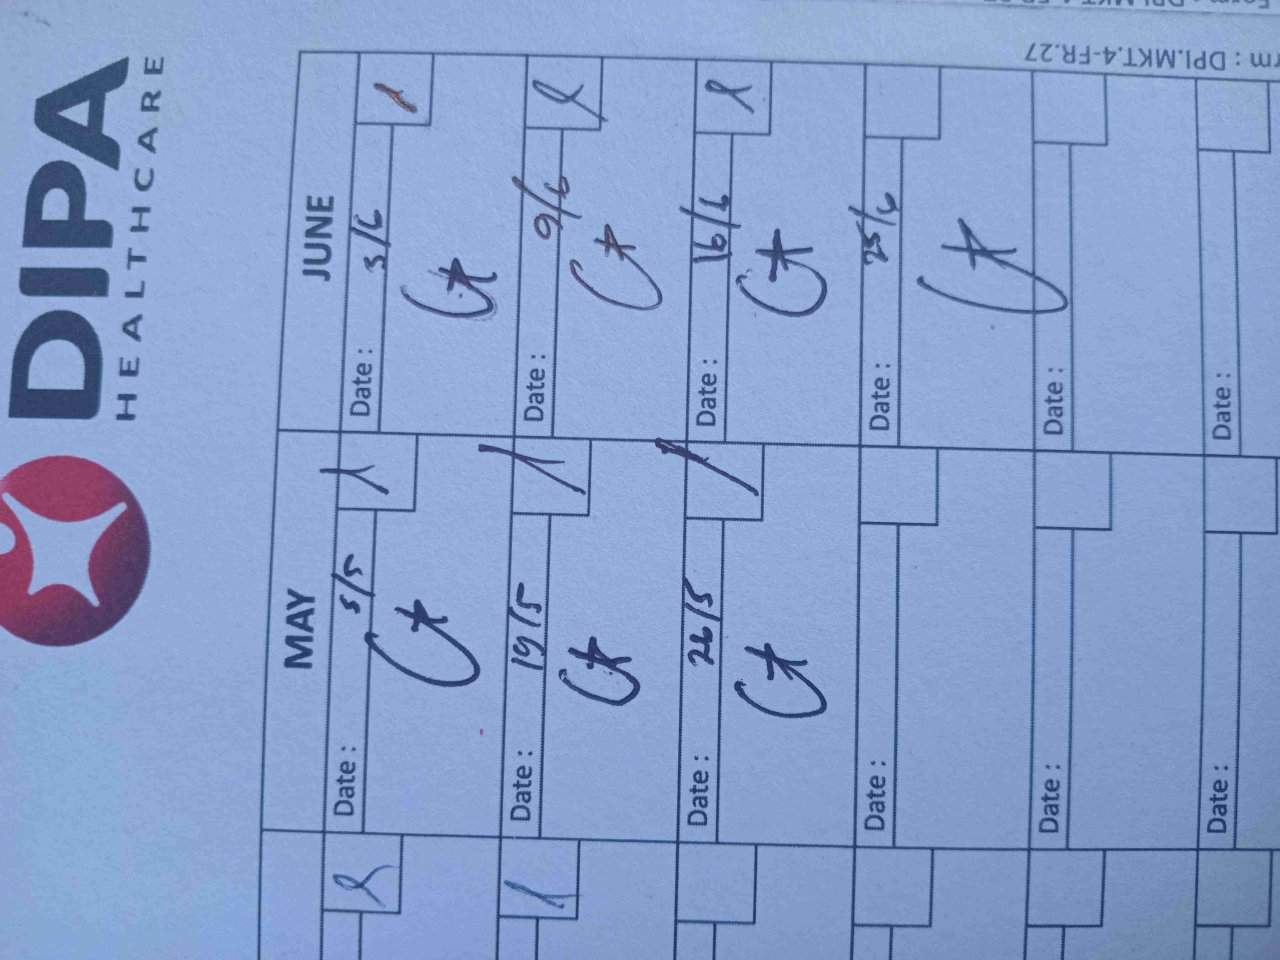 DIPA
HEALTHCARE
rm : DPI.MKT.4-FR.27
MAY
JUNE
Date : 5/5
Date : 3/6
Date : 19/5
Date : 9/6
Date : 26/5
Date : 16/6
Date :
Date : 25/6
Date :
Date :
Date :
Date :